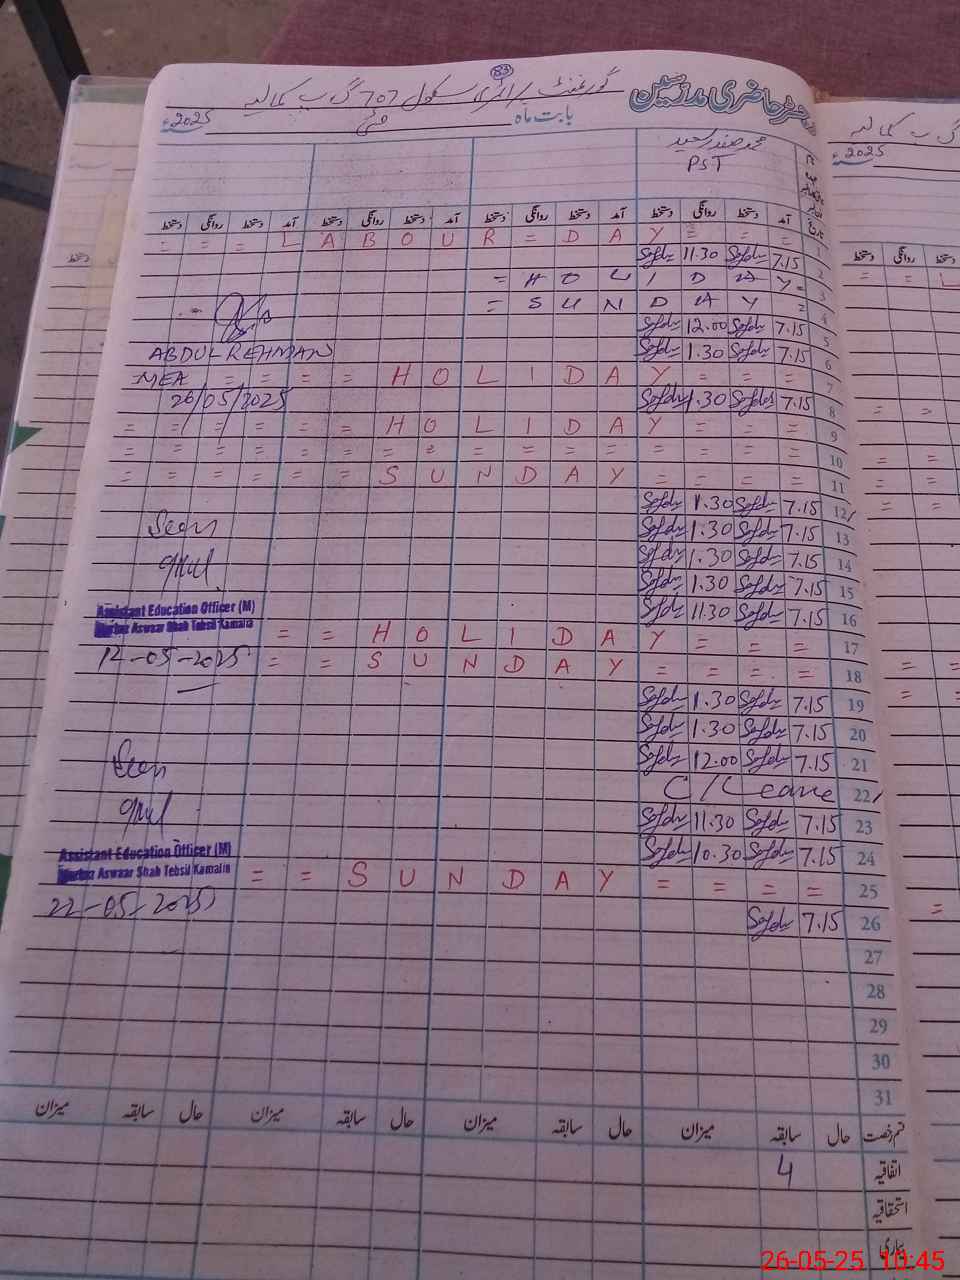 83
رجسٹر حاضری مدرسین گورنمنٹ پرائمری سکول 707 گ ب کمالیہ
بابت ماہ مئی 2025ء
محمد صفدر سعید
PST
آمد دستخط روانگی دستخط آمد دستخط روانگی دستخط آمد دستخط روانگی دستخط آمد دستخط روانگی دستخط
= = = L A B O U R = D A Y = = = 1
11.30 7.15 2
= H O L I D A Y = 3
= S U N D A Y = 4
12.00 7.15 5
ABDUL REHMAN 1.30 7.15 6
MEA = = = = H O L I D A Y = = = 7
26/05/2025 1.30 7.15 8
= = = = = = H O L I D A Y = = = 9
= = = = = = = = = = = = = = = = 10
= = = = = = S U N D A Y = = = 11
1.30 7.15 12
Seen 1.30 7.15 13
1.30 7.15 14
1.30 7.15 15
Assistant Education Officer (M) 11.30 7.15 16
Markaz Aswaar Shah Tehsil Kamalia = = H O L I D A Y = = = 17
12-05-2025 = = S U N D A Y = = = = 18
1.30 7.15 19
1.30 7.15 20
Seen 12.00 7.15 21
C/Leave 22
11.30 7.15 23
Assistant Education Officer (M) 10.30 7.15 24
Markaz Aswaar Shah Tehsil Kamalia = = S U N D A Y = = = = 25
22-05-2025 7.15 26
27
28
29
30
31
قسم رخصت حال سابقہ میزان حال سابقہ میزان حال سابقہ میزان حال سابقہ میزان
اتفاقیہ 4
استحقاقیہ
بیماری
گ ب کمالیہ
2025ء
دستخط روانگی دستخط
26-05-25 10:45